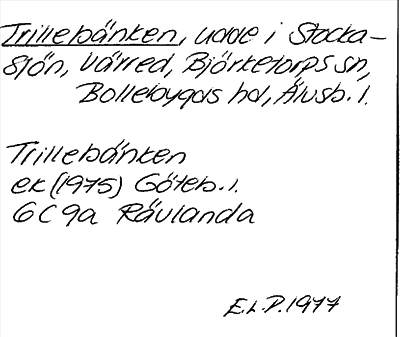 Trillebänken, udde i Stocka-
sjön, Värred, Björketorps sn,
Bollebygds hd, Älvsb. l.
Trillebänken
ek (1975) Göteb. l.
6C 9a Rävlanda
E.L.P. 1977